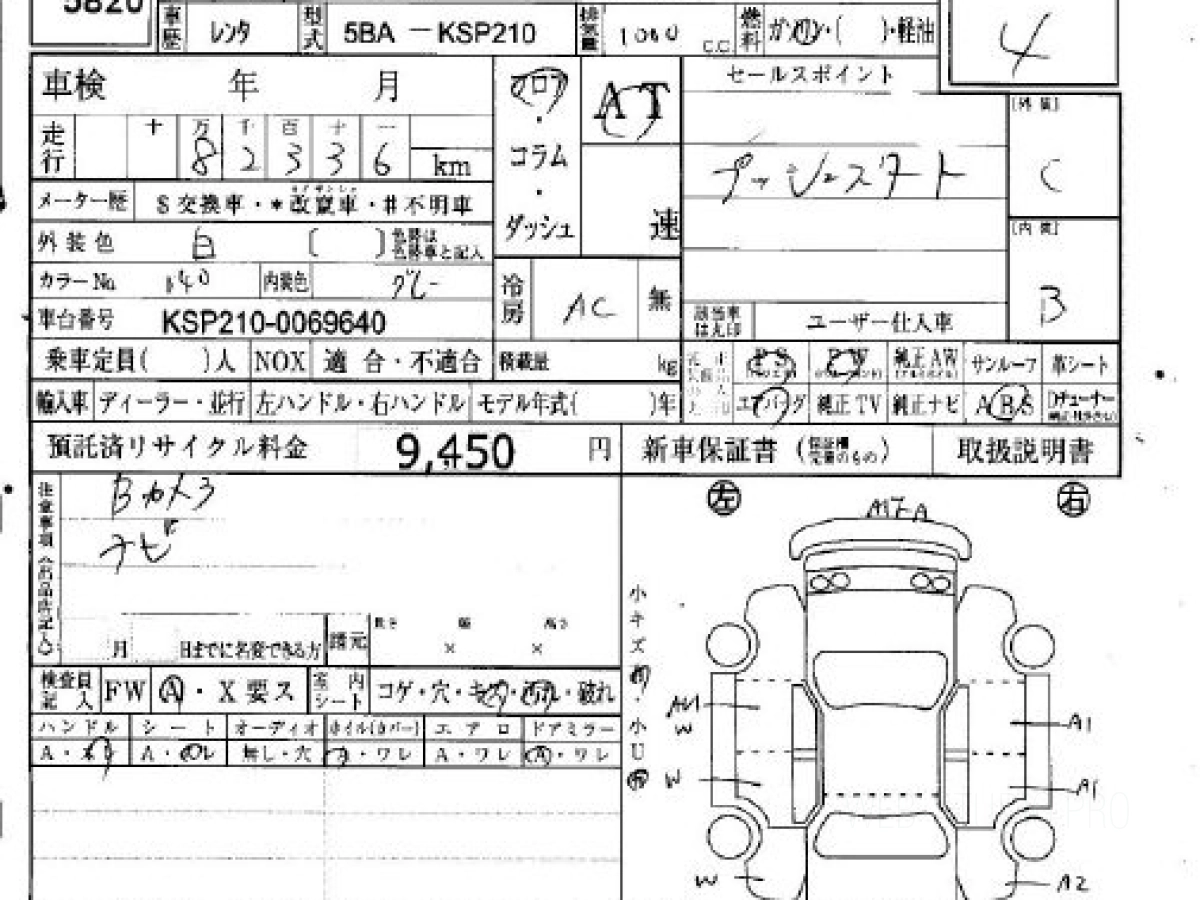 5820
車歴 レンタ 型式 5BA －KSP210 排気量 1000 C.C. 燃料 ガソリン・( )・軽油
4
車検 年 月 フロア AT セールスポイント [外装]
走行 十 万 千 百 十 一
8 2 3 3 6 km ・コラム・ プッシュスタート C
メーター歴 S交換車・*改竄車・#不明車
外装色 白 [ ] 色替は色替車と記入 ダッシュ 速 [内装]
カラーNo 040 内装色 グレー 冷房 AC 無 B
車台番号 KSP210-0069640 該当車は丸印 ユーザー仕入車
乗車定員( )人 NOX 適 合・不適合 積載量 kg PS PW 純正AW サンルーフ 革シート
輸入車 ディーラー・並行 左ハンドル・右ハンドル モデル年式( )年 エアバッグ 純正TV 純正ナビ ABS
預託済リサイクル料金 9,450 円 新車保証書 取扱説明書
注意事項(出品店記入)
Bカメラ
ナビ
左 右
月 日までに名変できる方 諸元 長さ 幅 高さ
× ×
検査員記入 FW A・X要ス 室内シート コゲ・穴・キズ・汚れ・破れ
ハンドル シート オーディオ ホイル(カバー) エアロ ドアミラー
A・スレ A・スレ 無し・穴 A・ワレ A・ワレ A・ワレ
小キズ 有・小U 有
A1
W A1
W A1
W A2
PRO